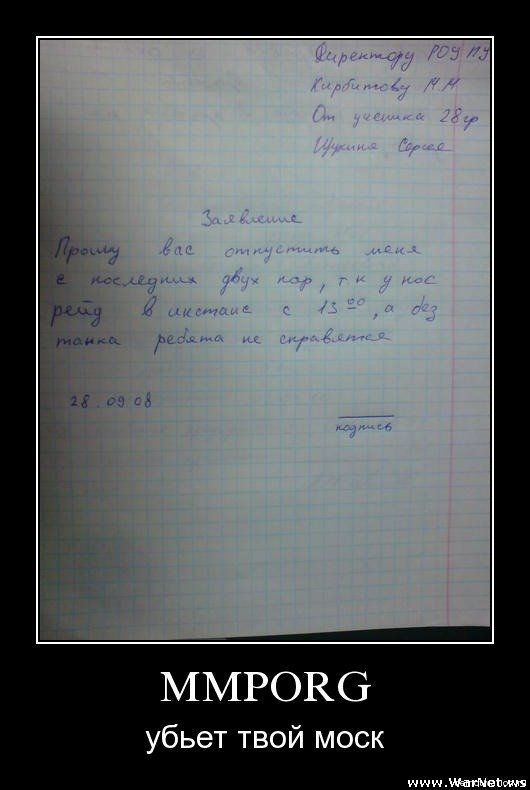 Директору РОУ ПУ
Кирбитову М.М
От ученика 28гр
Щукина Сергея
Заявление
Прошу вас отпустить меня
с последних двух пар, т к у нас
рейд в инстанс с 13 00, а без
танка ребята не справятся
28.09.08
подпись
MMPORG
убьет твой моск
www.WarNet.ws